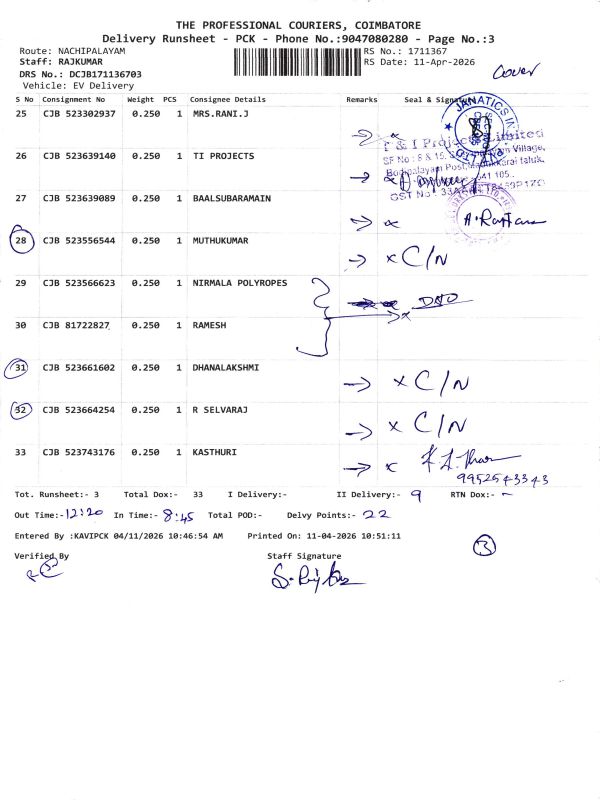 THE PROFESSIONAL COURIERS, COIMBATORE
Delivery Runsheet - PCK - Phone No.:9047080280 - Page No.:3
Route: NACHIPALAYAM RS No.: 1711367
Staff: RAJKUMAR RS Date: 11-Apr-2026
DRS No.: DCJB171136703
Vehicle: EV Delivery
Cover
S No Consignment No Weight PCS Consignee Details Remarks Seal & Signature
25 CJB 523302937 0.250 1 MRS.RANI.J
JANATICS
PVT LTD
Projects Limited
26 CJB 523639140 0.250 1 TI PROJECTS
27 CJB 523639089 0.250 1 BAALSUBARAMAIN
28 CJB 523556544 0.250 1 MUTHUKUMAR x C/N
29 CJB 523566623 0.250 1 NIRMALA POLYROPES
30 CJB 81722827 0.250 1 RAMESH
31 CJB 523661602 0.250 1 DHANALAKSHMI x C/N
32 CJB 523664254 0.250 1 R SELVARAJ x C/N
33 CJB 523743176 0.250 1 KASTHURI
9952543343
Tot. Runsheet:- 3 Total Dox:- 33 I Delivery:- II Delivery:- 9 RTN Dox:- -
Out Time:-12:20 In Time:- 8:45 Total POD:- Delvy Points:- 22
Entered By :KAVIPCK 04/11/2026 10:46:54 AM Printed On: 11-04-2026 10:51:11
3
Verified By Staff Signature